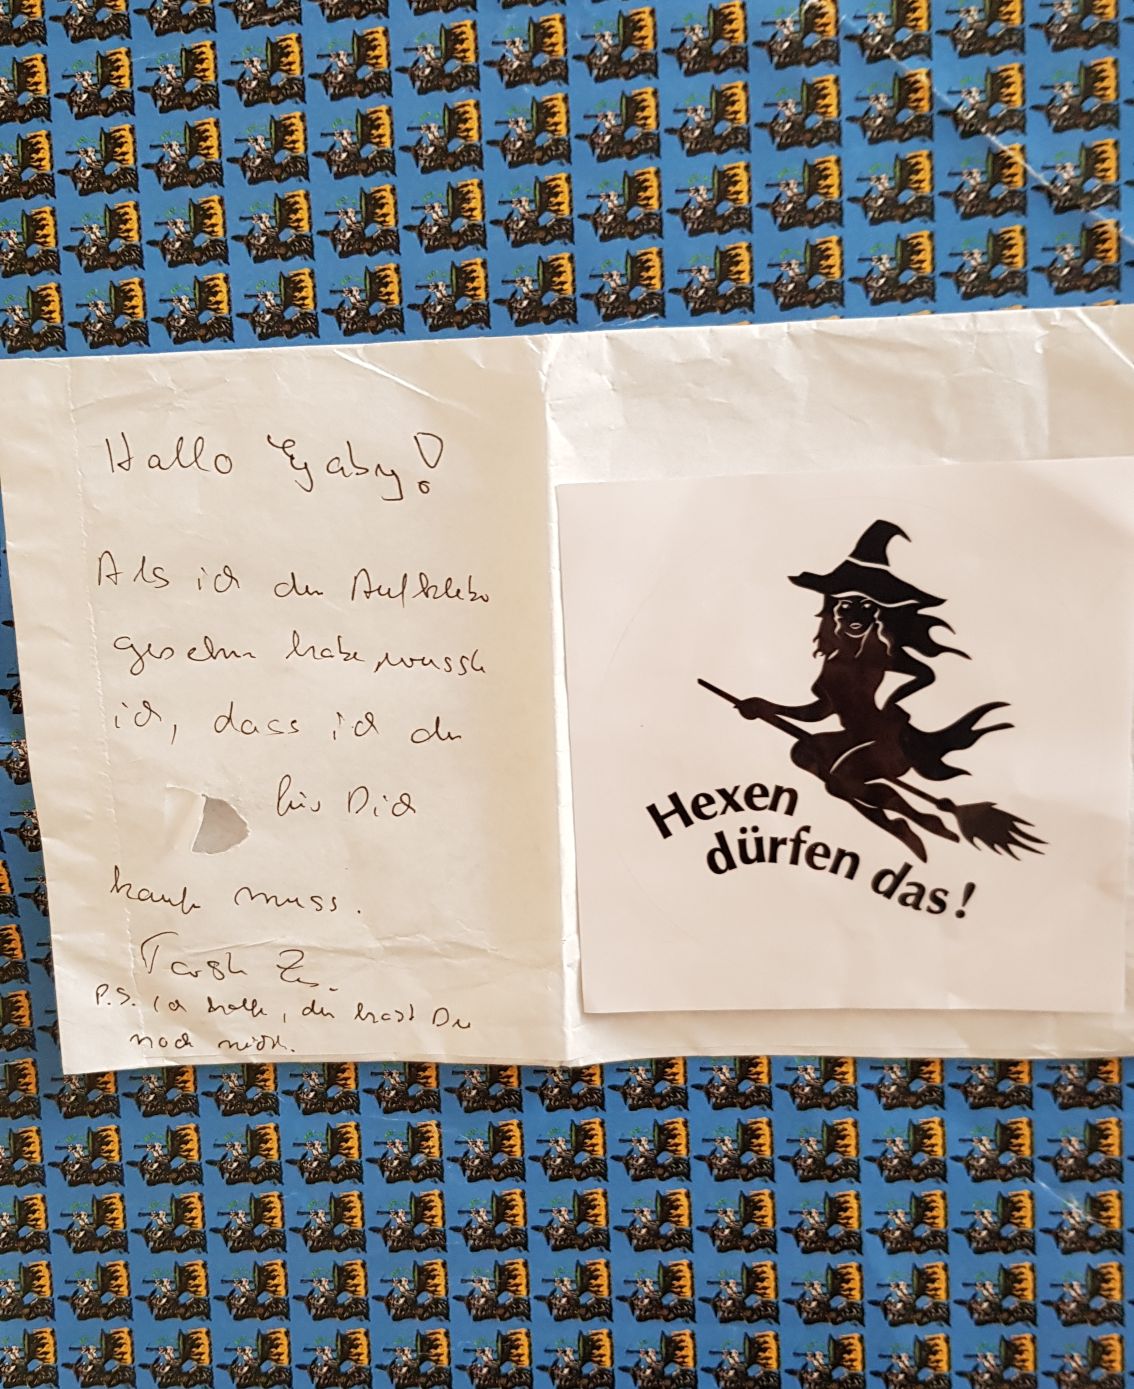 Hallo Gaby!
Als ich den Aufkleber
gesehen habe, wusste
ich, dass ich den
für Dich
kaufen muss.
P.S. Ich hoffe, den hast Du
noch nicht.
Hexen
dürfen das!